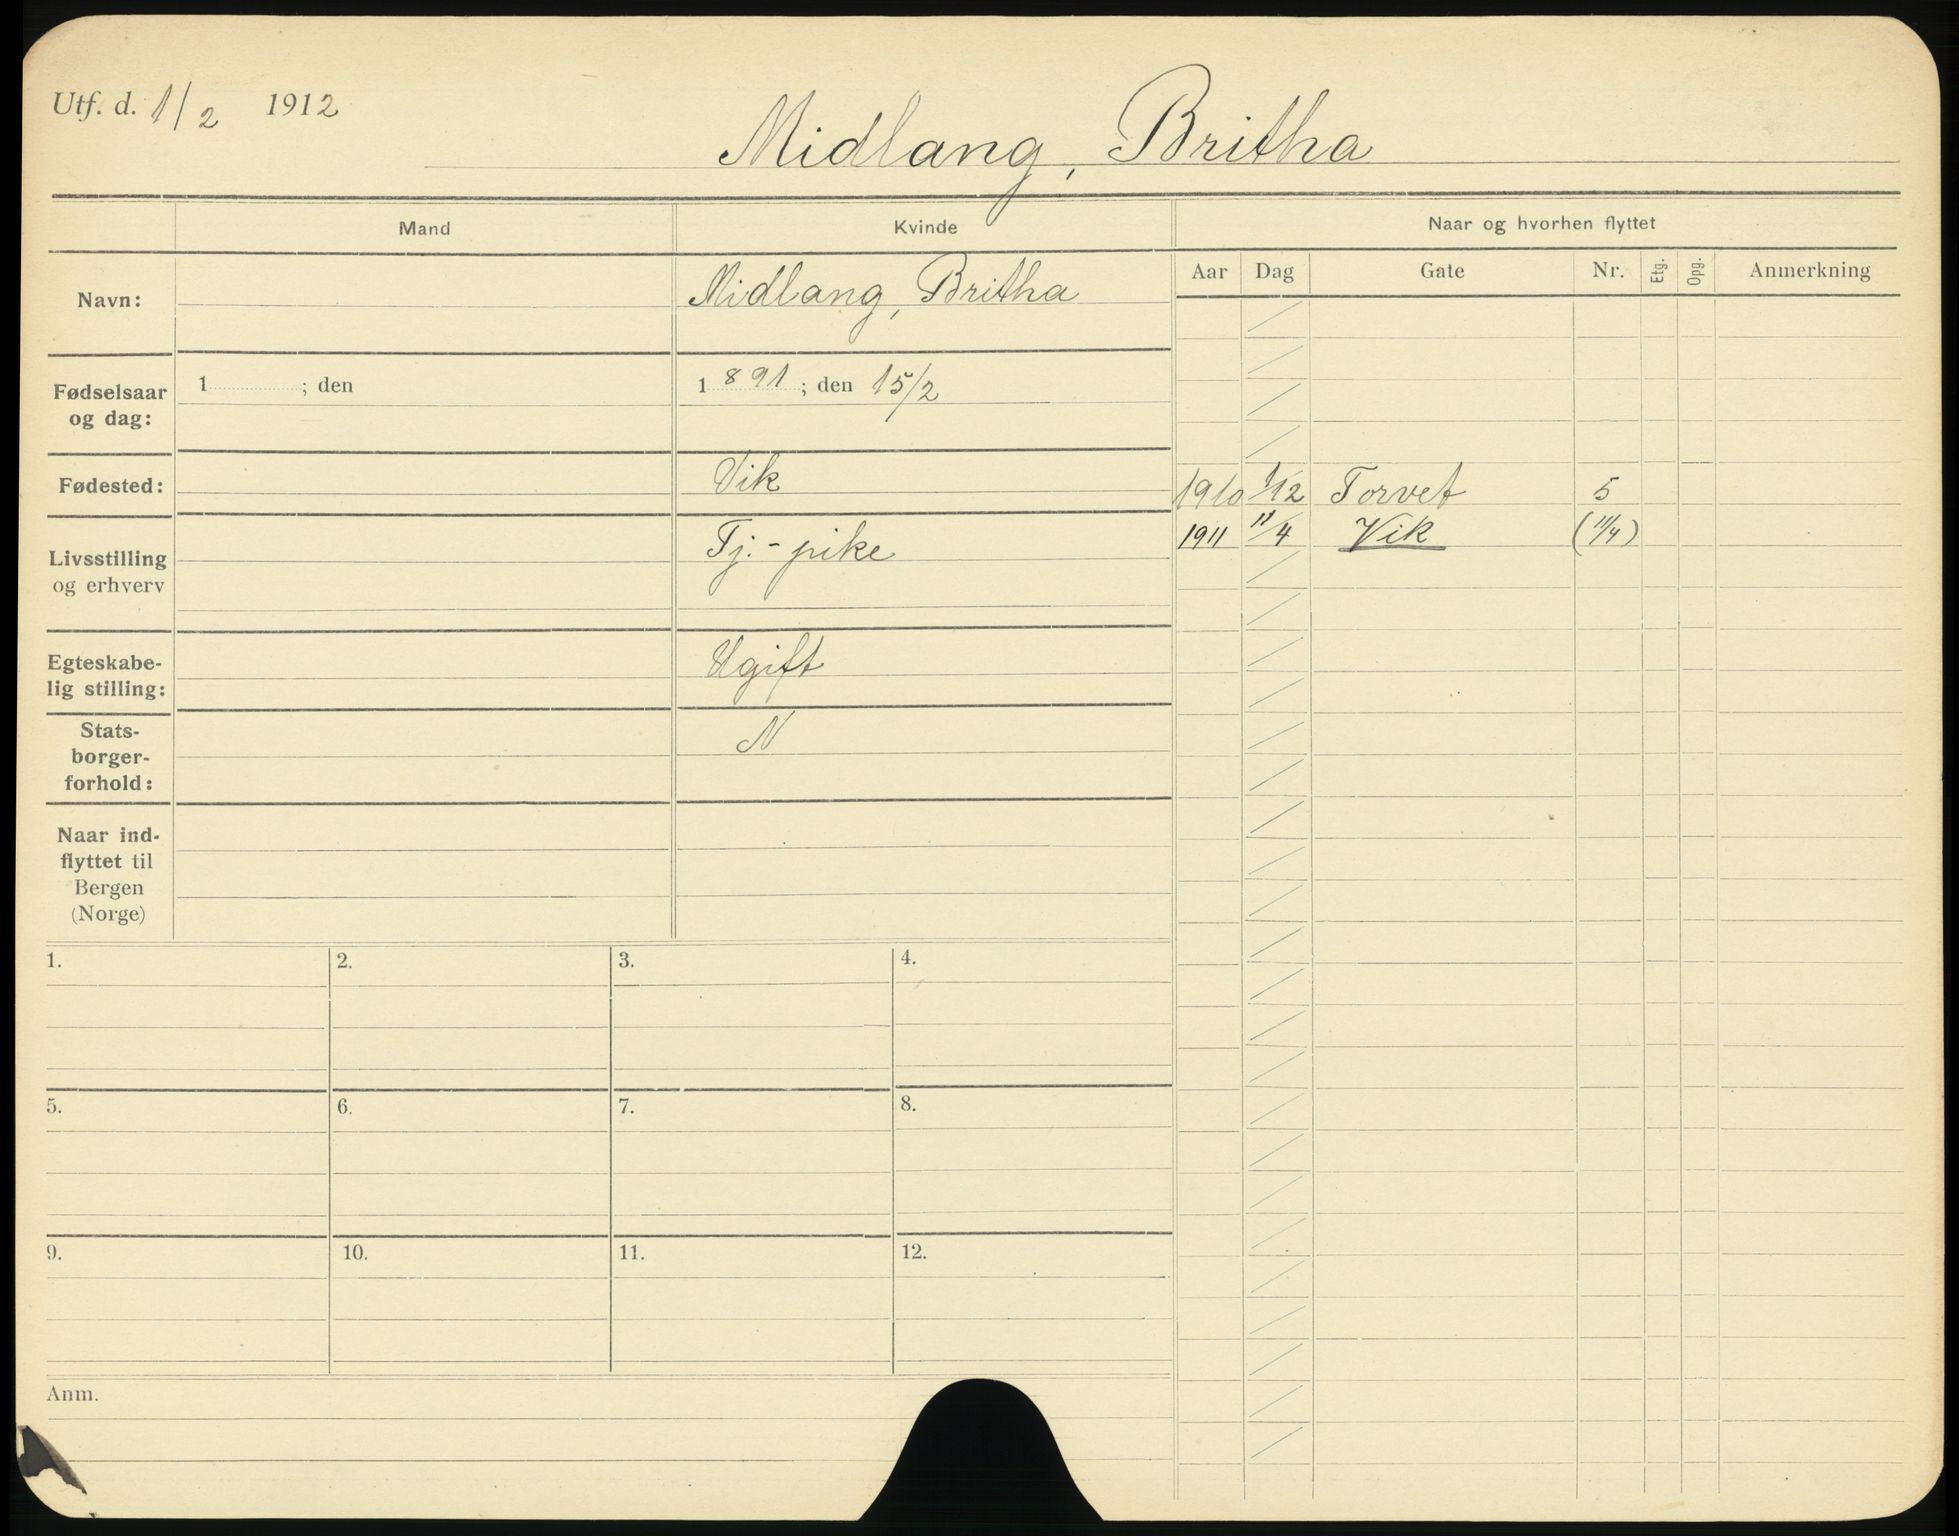 Utf. d. 1/2 1912
Midlang, Britha
Mand
Kvinde
Naar og hvorhen flyttet
Aar Dag Gate Nr. Etg. Opg. Anmerkning
Navn:
Midlang, Britha
Fødselsaar
og dag:
1 ; den
1 891 ; den 15/2
Fødested:
Vik
1910 1/12 Torvet 5
1911 11/4 Vik (11/4)
Livsstilling
og erhverv
Tj.-pike
Egteskabe-
lig stilling:
Ugift
Stats-
borger-
forhold:
N
Naar ind-
flyttet til
Bergen
(Norge)
1. 2. 3. 4.
5. 6. 7. 8.
9. 10. 11. 12.
Anm.